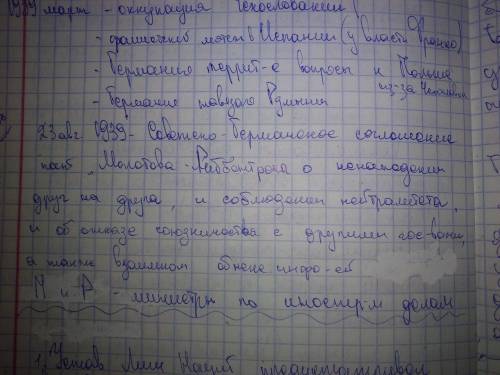 1939 март - оккупация Чехословакии
- фашистский мятеж в Испании (у власти Франко)
- Германия террит-е вопросы к Польше
из-за
- Германия Румыния
23 авг. 1939 - Советско-Германское соглашение
пакт "Молотова-Риббентропа о ненападении
друг на друга, и соблюдении нейтралитета,
и об отказе союзничества с другими гос-вами,
а также взаимном обмене инфо-ей
М и Р - министры по иностр-м делам
1) Устав Лиги Наций